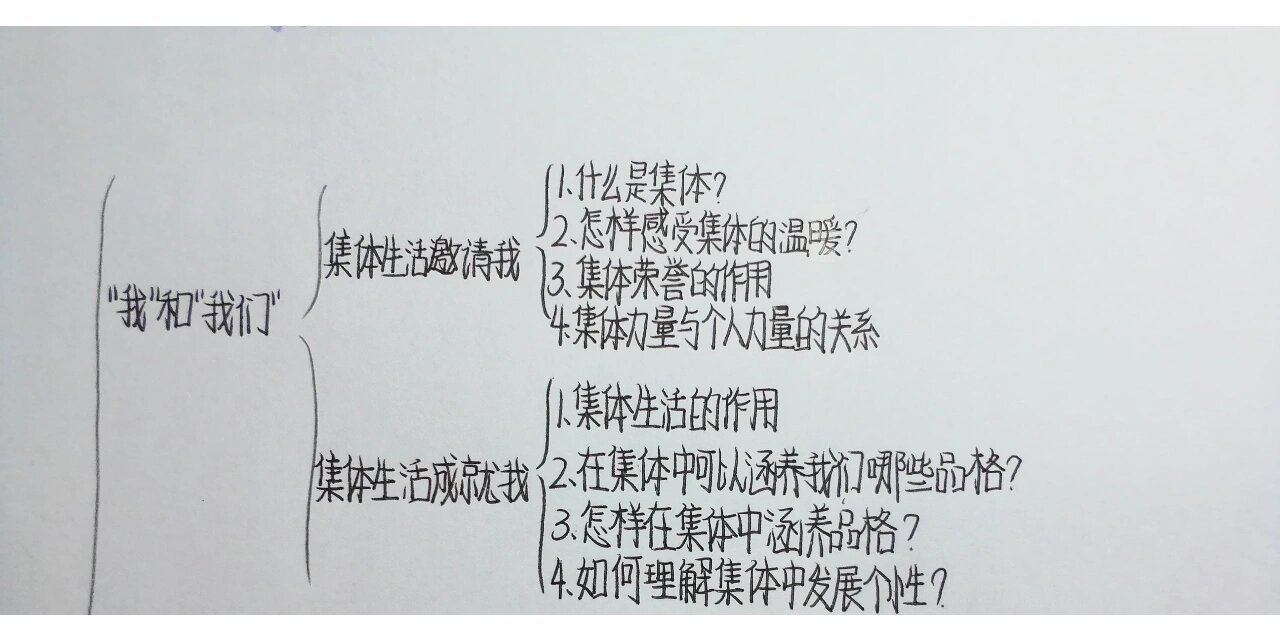 "我"和"我们"
集体生活邀请我
1.什么是集体?
2.怎样感受集体的温暖?
3.集体荣誉的作用
4.集体力量与个人力量的关系
集体生活成就我
1.集体生活的作用
2.在集体中可以涵养我们哪些品格?
3.怎样在集体中涵养品格?
4.如何理解集体中发展个性?